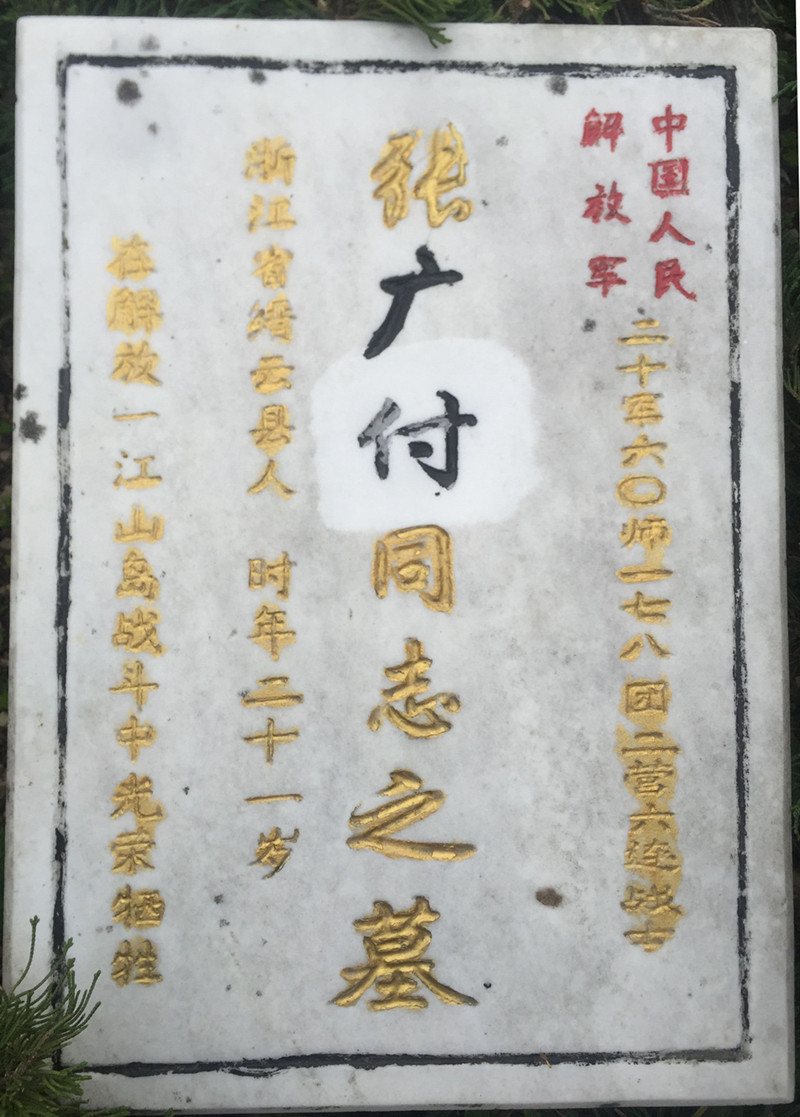 中国人民
解放军
二十军六〇师一七八团二营六连战士
张广付同志之墓
浙江省缙云县人 时年二十一岁
在解放一江山岛战斗中光荣牺牲